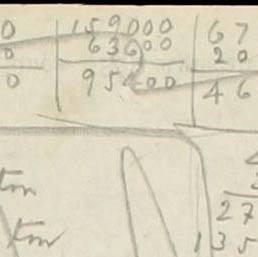 0 159000 67
0 63600 20
0 95400 46
ton
ton
27
135